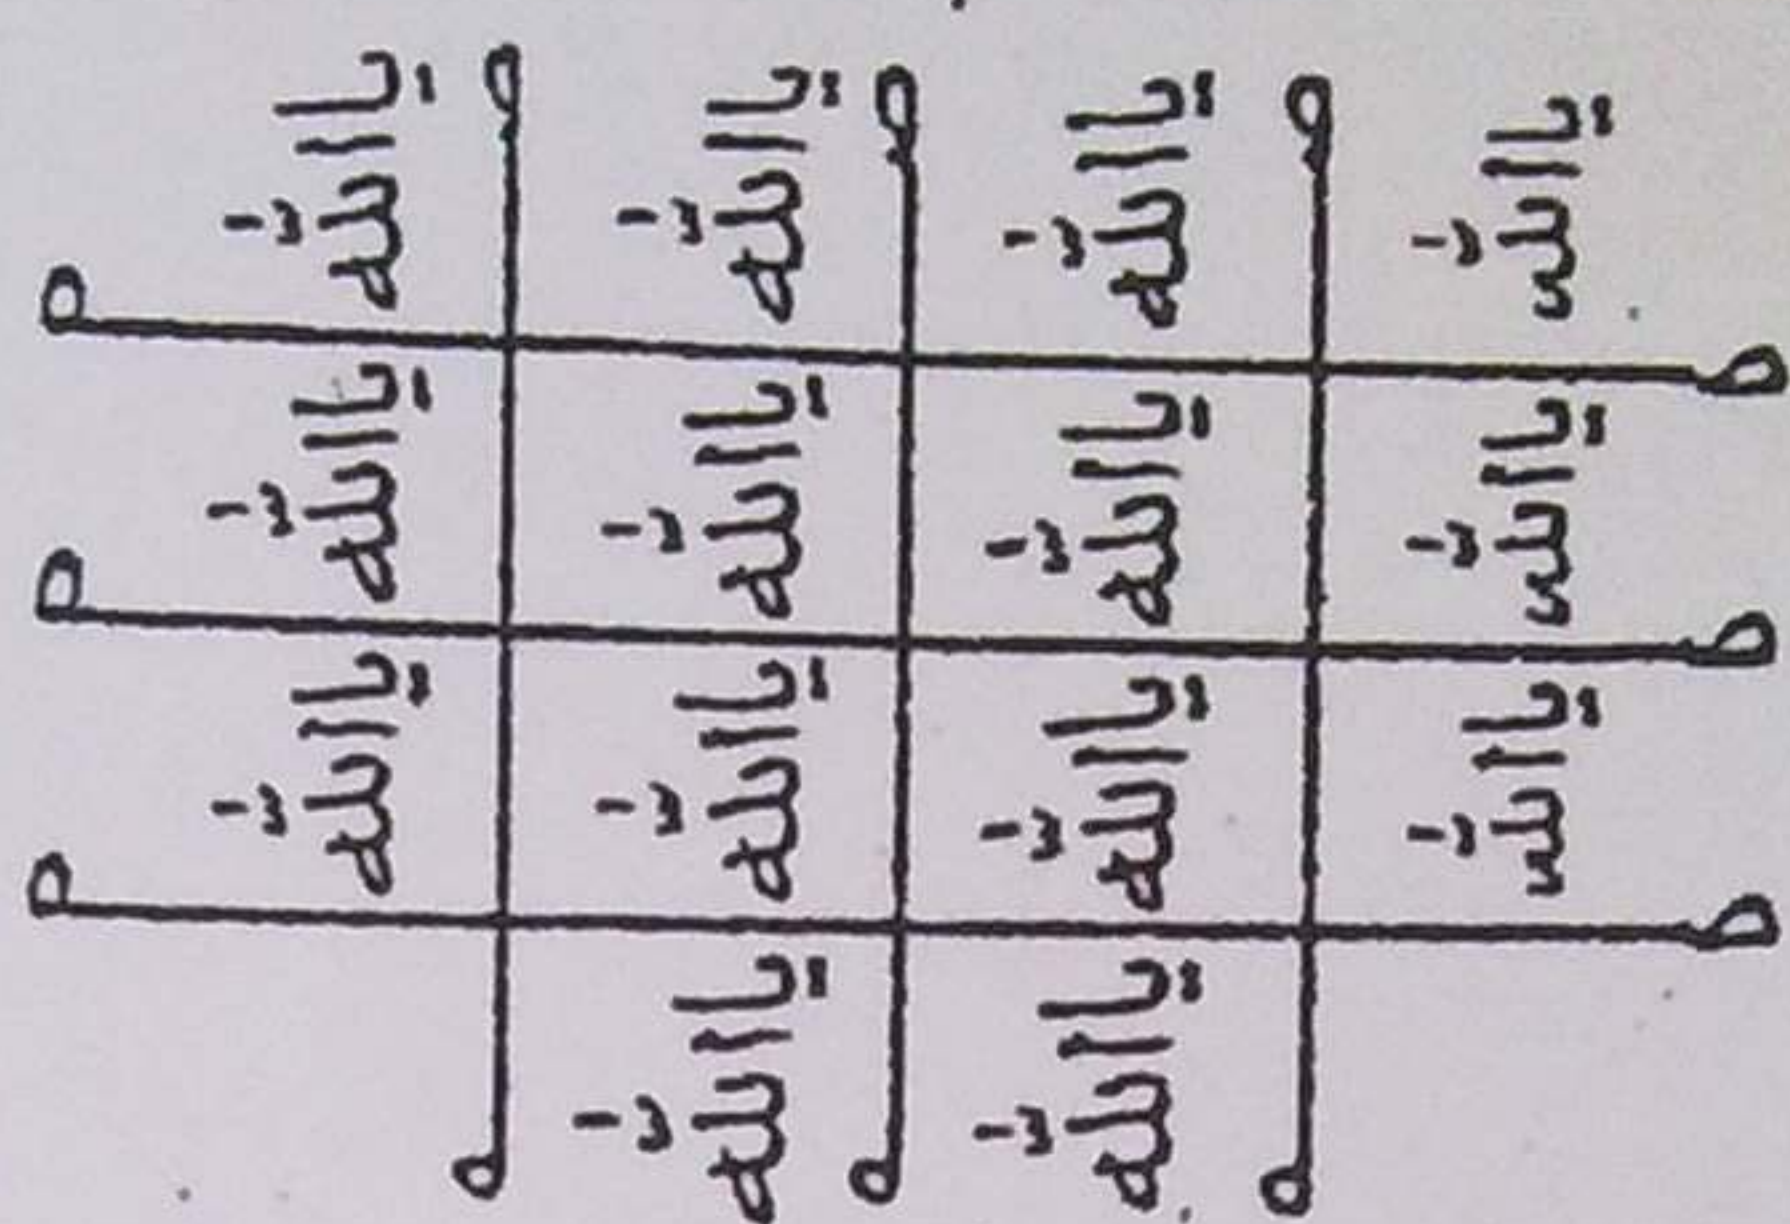 یا اللّٰه یا اللّٰه یا اللّٰه
یا اللّٰه یا اللّٰه یا اللّٰه یا اللّٰه
یا اللّٰه یا اللّٰه یا اللّٰه یا اللّٰه
یا اللّٰه یا اللّٰه یا اللّٰه